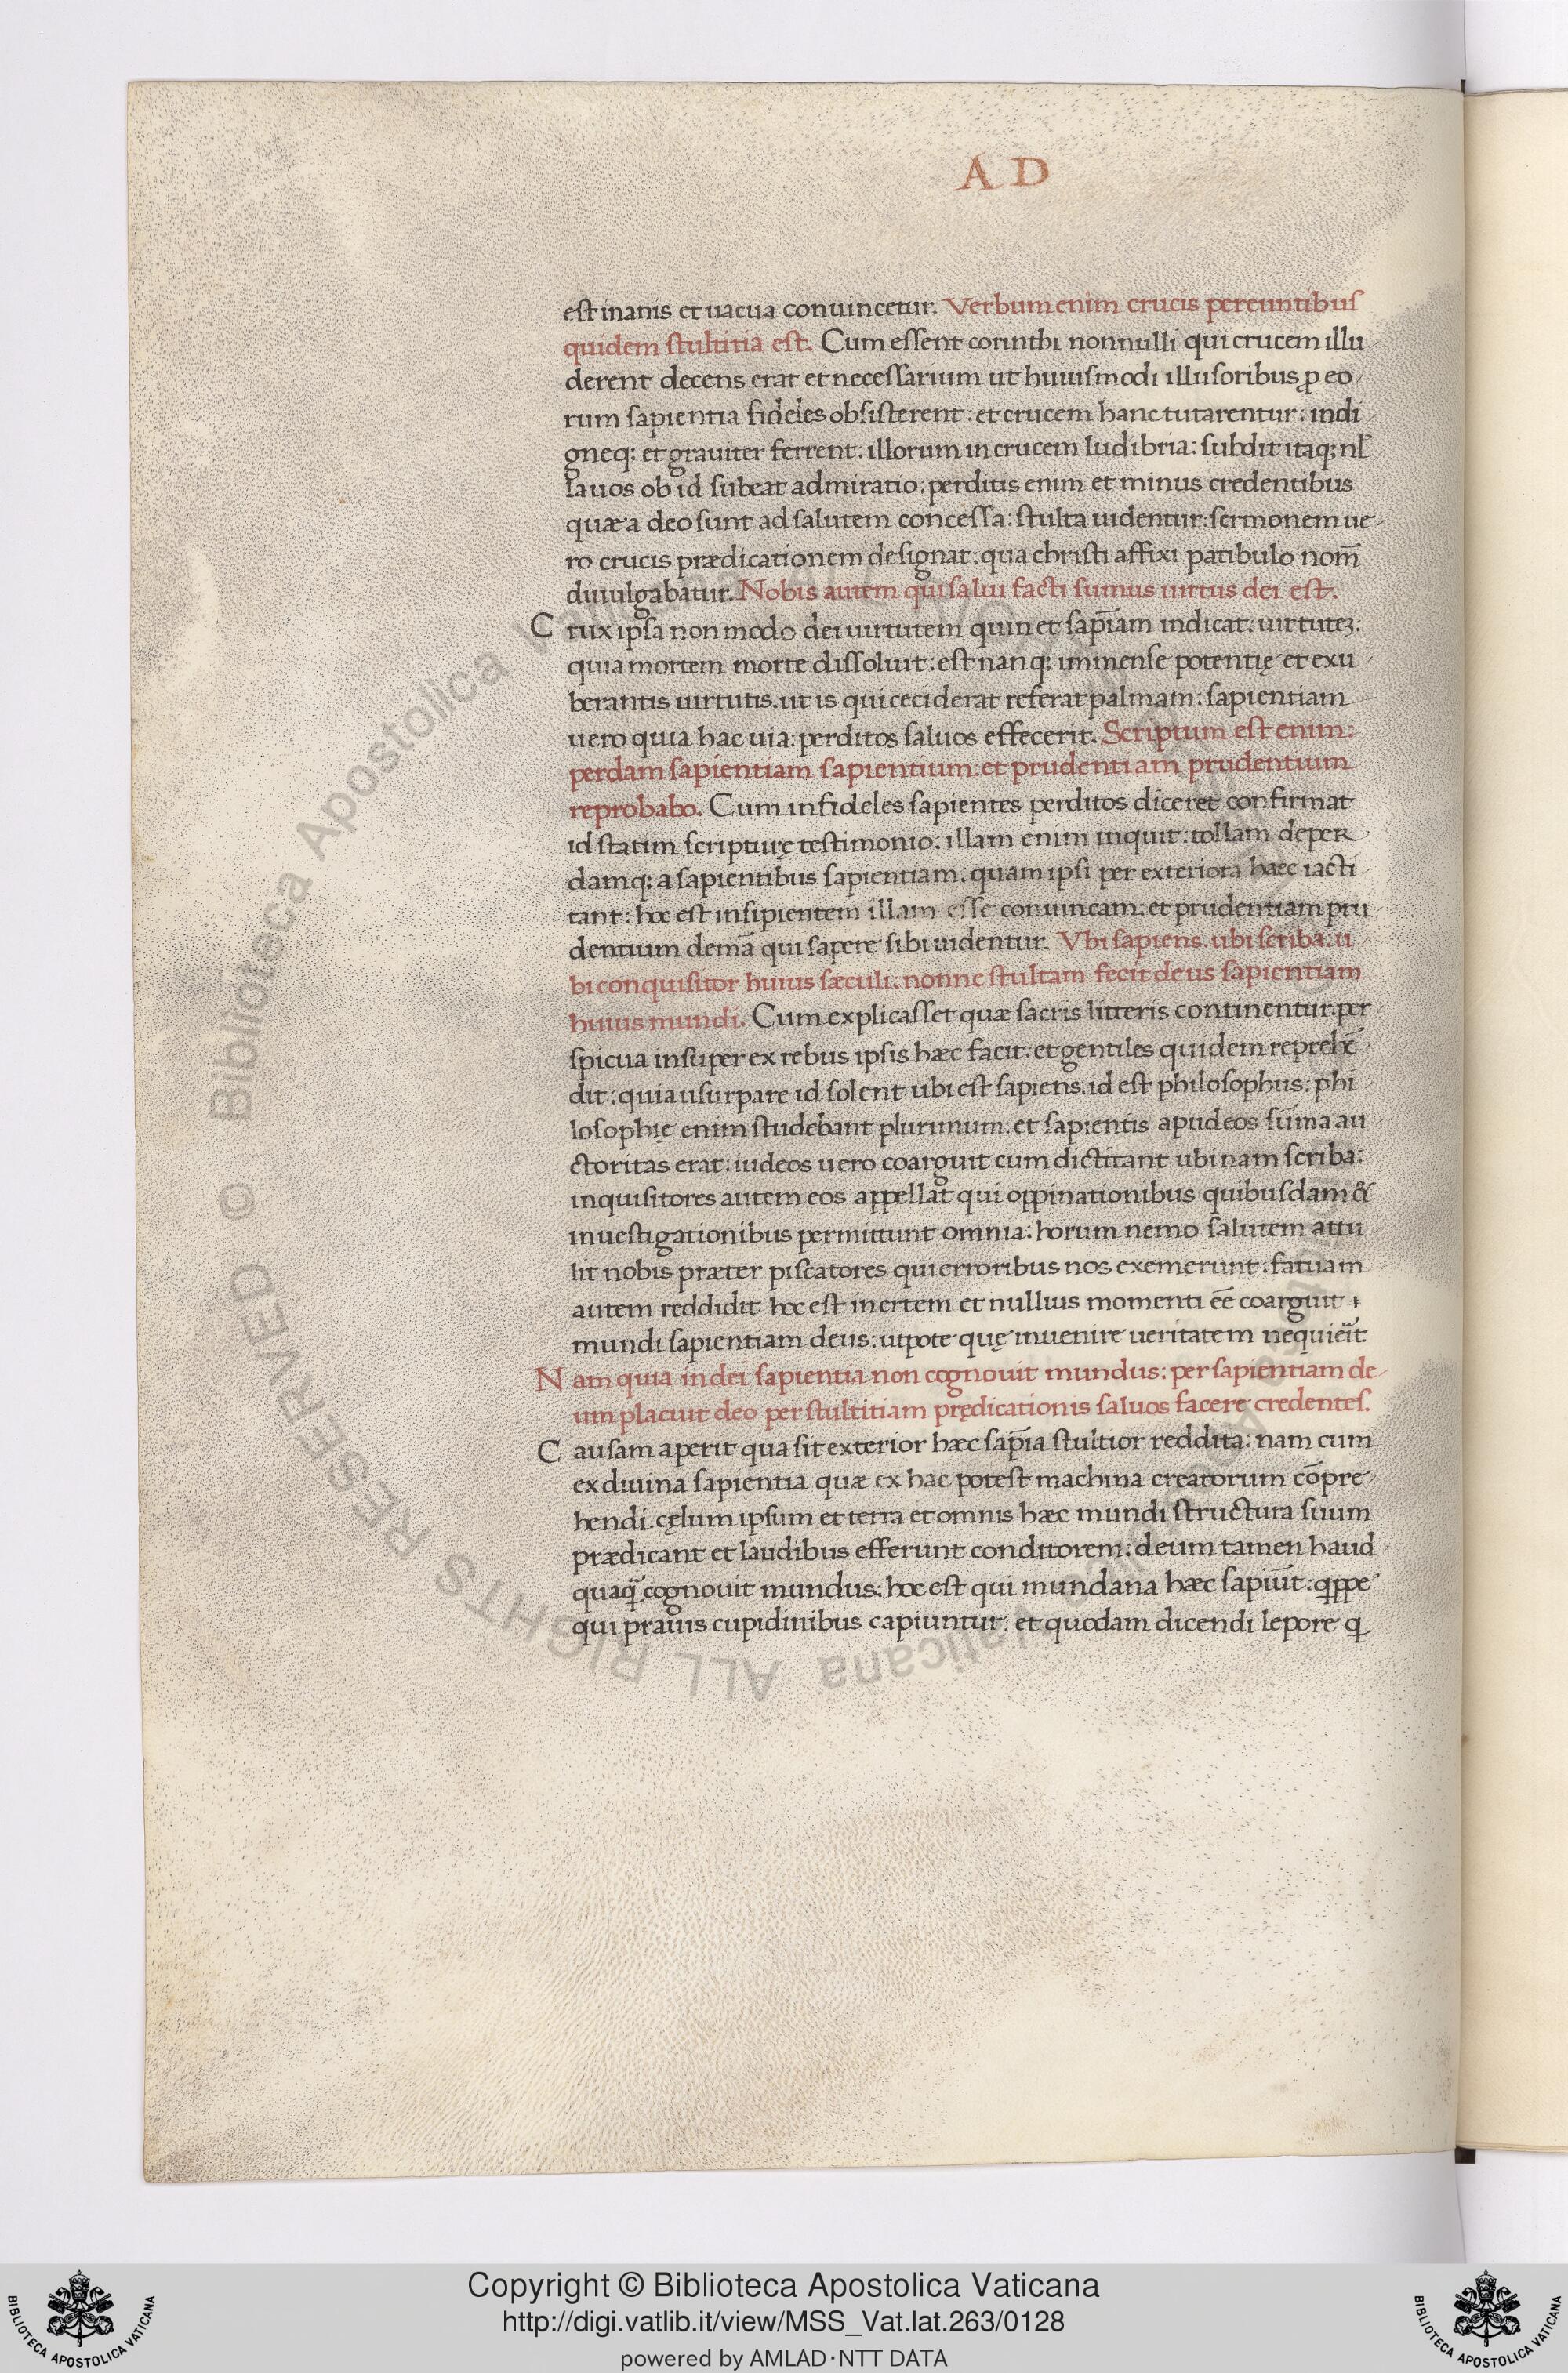 A D
est inanis et uacua conuincetur. Verbum enim crucis pereuntibus
quidem stultitia est. Cum essent corinthi nonnulli qui crucem illu
derent decens erat et necessarium ut huiusmodi illusoribus ꝓ eo
rum sapientia fideles obsisterent: et crucem hanc tutarentur: indi
gneq; et grauiter ferrent: illorum in crucem ludibria: subdit itaq; nł
la uos ob id subeat admiratio: perditis enim et minus credentibus
quæ a deo sunt ad salutem concessa: stulta uidentur: sermonem ue
ro crucis prædicationem designat: qua christi affixi patibulo nom̄
diuulgabatur. Nobis autem qui salui facti sumus uirtus dei est.
C rux ipsa non modo dei uirtutem quin et sap̄iam indicat: uirtuteʒ:
quia mortem morte dissoluit: est nanq; immense potentię et exu
berantis uirtutis. ut is qui ceciderat referat palmam: sapientiam
uero quia hac uia: perditos saluos effecerit. Scriptum est enim:
perdam sapientiam sapientium: et prudentiam prudentium
reprobabo. Cum infideles sapientes perditos diceret confirmat
id statim scripturę testimonio. illam enim inquit: tollam deper
damq; a sapientibus sapientiam: quam ipsi per exteriora haec iacti
tant: hoc est insipientem illam esse conuincam: et prudentiam pru
dentium demā qui sapere sibi uidentur. Vbi sapiens. ubi scriba: u
bi conquisitor huius sæculi: nonne stultam fecit deus sapientiam
huius mundi. Cum explicasset quæ sacris litteris continentur: per
spicua insuper ex rebus ipsis hæc facit: et gentiles quidem reprehē
dit: quia usurpare id solent ubi est sapiens. id est philosophus: phi
losophię enim studebant plurimum: et sapientis apud eos sūma au
ctoritas erat: iudeos uero coarguit cum dictitant ubi nam scriba:
inquisitores autem eos appellat qui oppinationibus quibusdam &
inuestigationibus permittunt omnia: horum nemo salutem attu
lit nobis præter piscatores qui erroribus nos exemerunt: fatuam
autem reddidit hoc est inertem et nullius momenti eē coarguit
mundi sapientiam deus: utpote quę inuenire ueritatem nequieīt
N am quia in dei sapientia non cognouit mundus: per sapientiam de
um placuit deo per stultitiam prędicationis saluos facere credentes.
C ausam aperit qua sit exterior hæc sap̄ia stultior reddita: nam cum
ex diuina sapientia quæ ex hac potest machina creatorum cōpre
hendi. cęlum ipsum et terra et omnis hæc mundi structura suum
prædicant et laudibus efferunt conditorem: deum tamen haud
quaq̃ cognouit mundus: hoc est qui mundana hæc sapiūt: qppe
qui prauis cupidinibus capiuntur: et quodam dicendi lepore q
Biblioteca Apostolica Vaticana ALL RIGHTS RESERVED ©
Copyright © Biblioteca Apostolica Vaticana
http://digi.vatlib.it/view/MSS_Vat.lat.263/0128
powered by AMLAD·NTT DATA
BIBLIOTECA APOSTOLICA VATICANA
BIBLIOTECA APOSTOLICA VATICANA